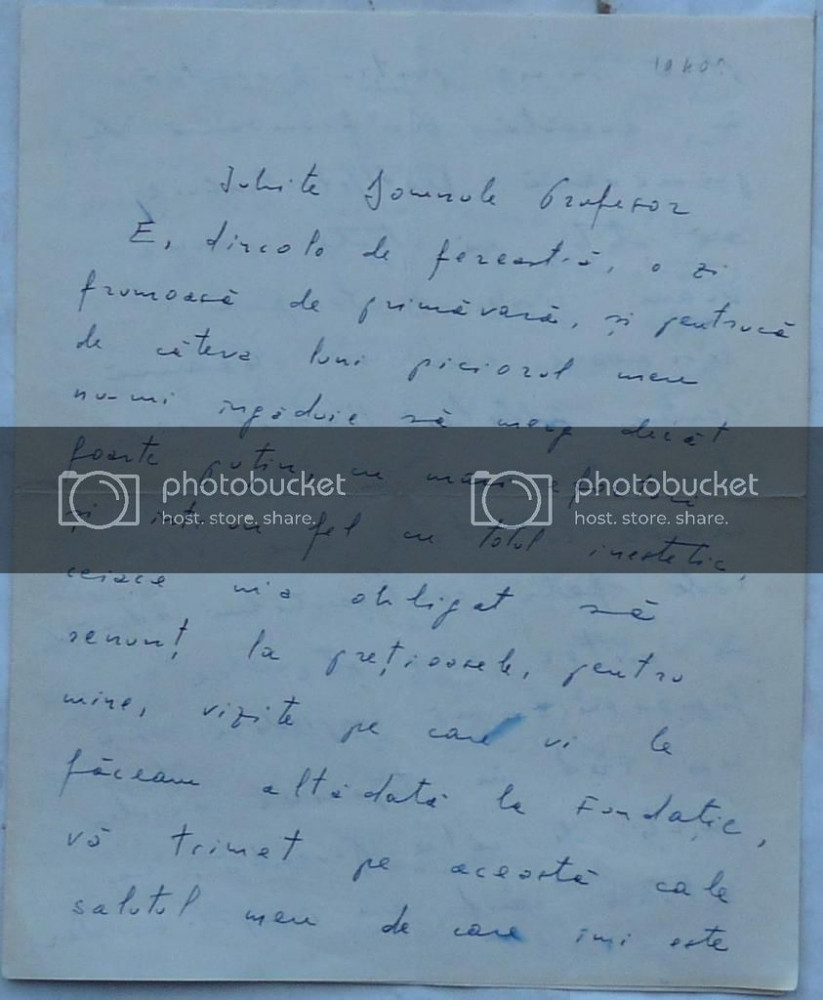 Iubite Domnule Profesor
E, dincolo de fereastră, o zi
frumoasă de primăvară, și pentrucă
de câteva luni piciorul meu
nu-mi îngăduie să merg decât
foarte puțin, cu mari eforturi
photobucket photobucket
host. store. share. host. store. share.
și într'un fel cu totul inestetic,
ceiace m'a obligat să
renunț la prețioasele, pentru
mine, vizite pe care vi le
făceam altădată la Fundație,
vă trimet pe această cale
salutul meu de care îmi este